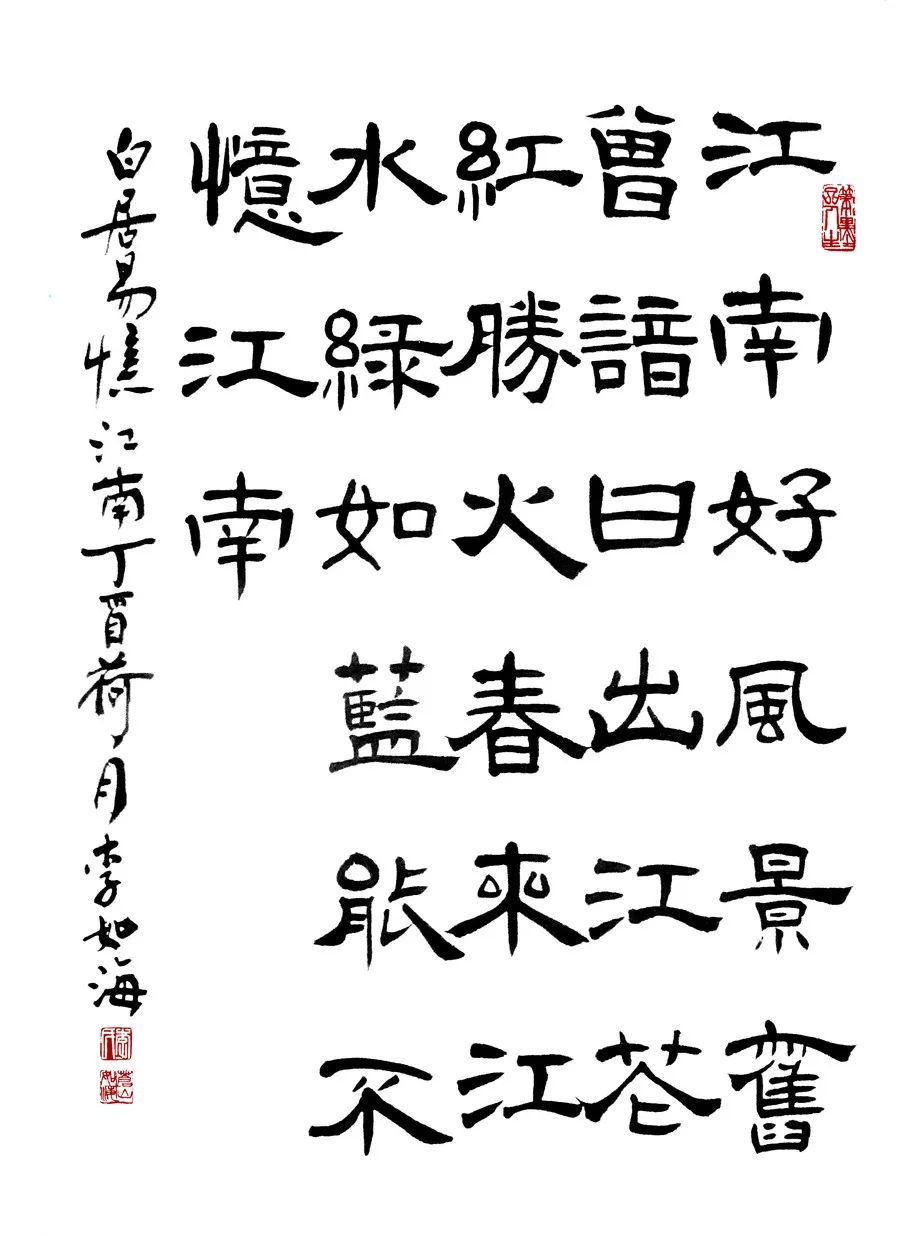 江南好風景舊
曾諳日出江花
紅勝火春來江
水綠如藍能不
憶江南
白居易憶江南丁酉荷月李如海